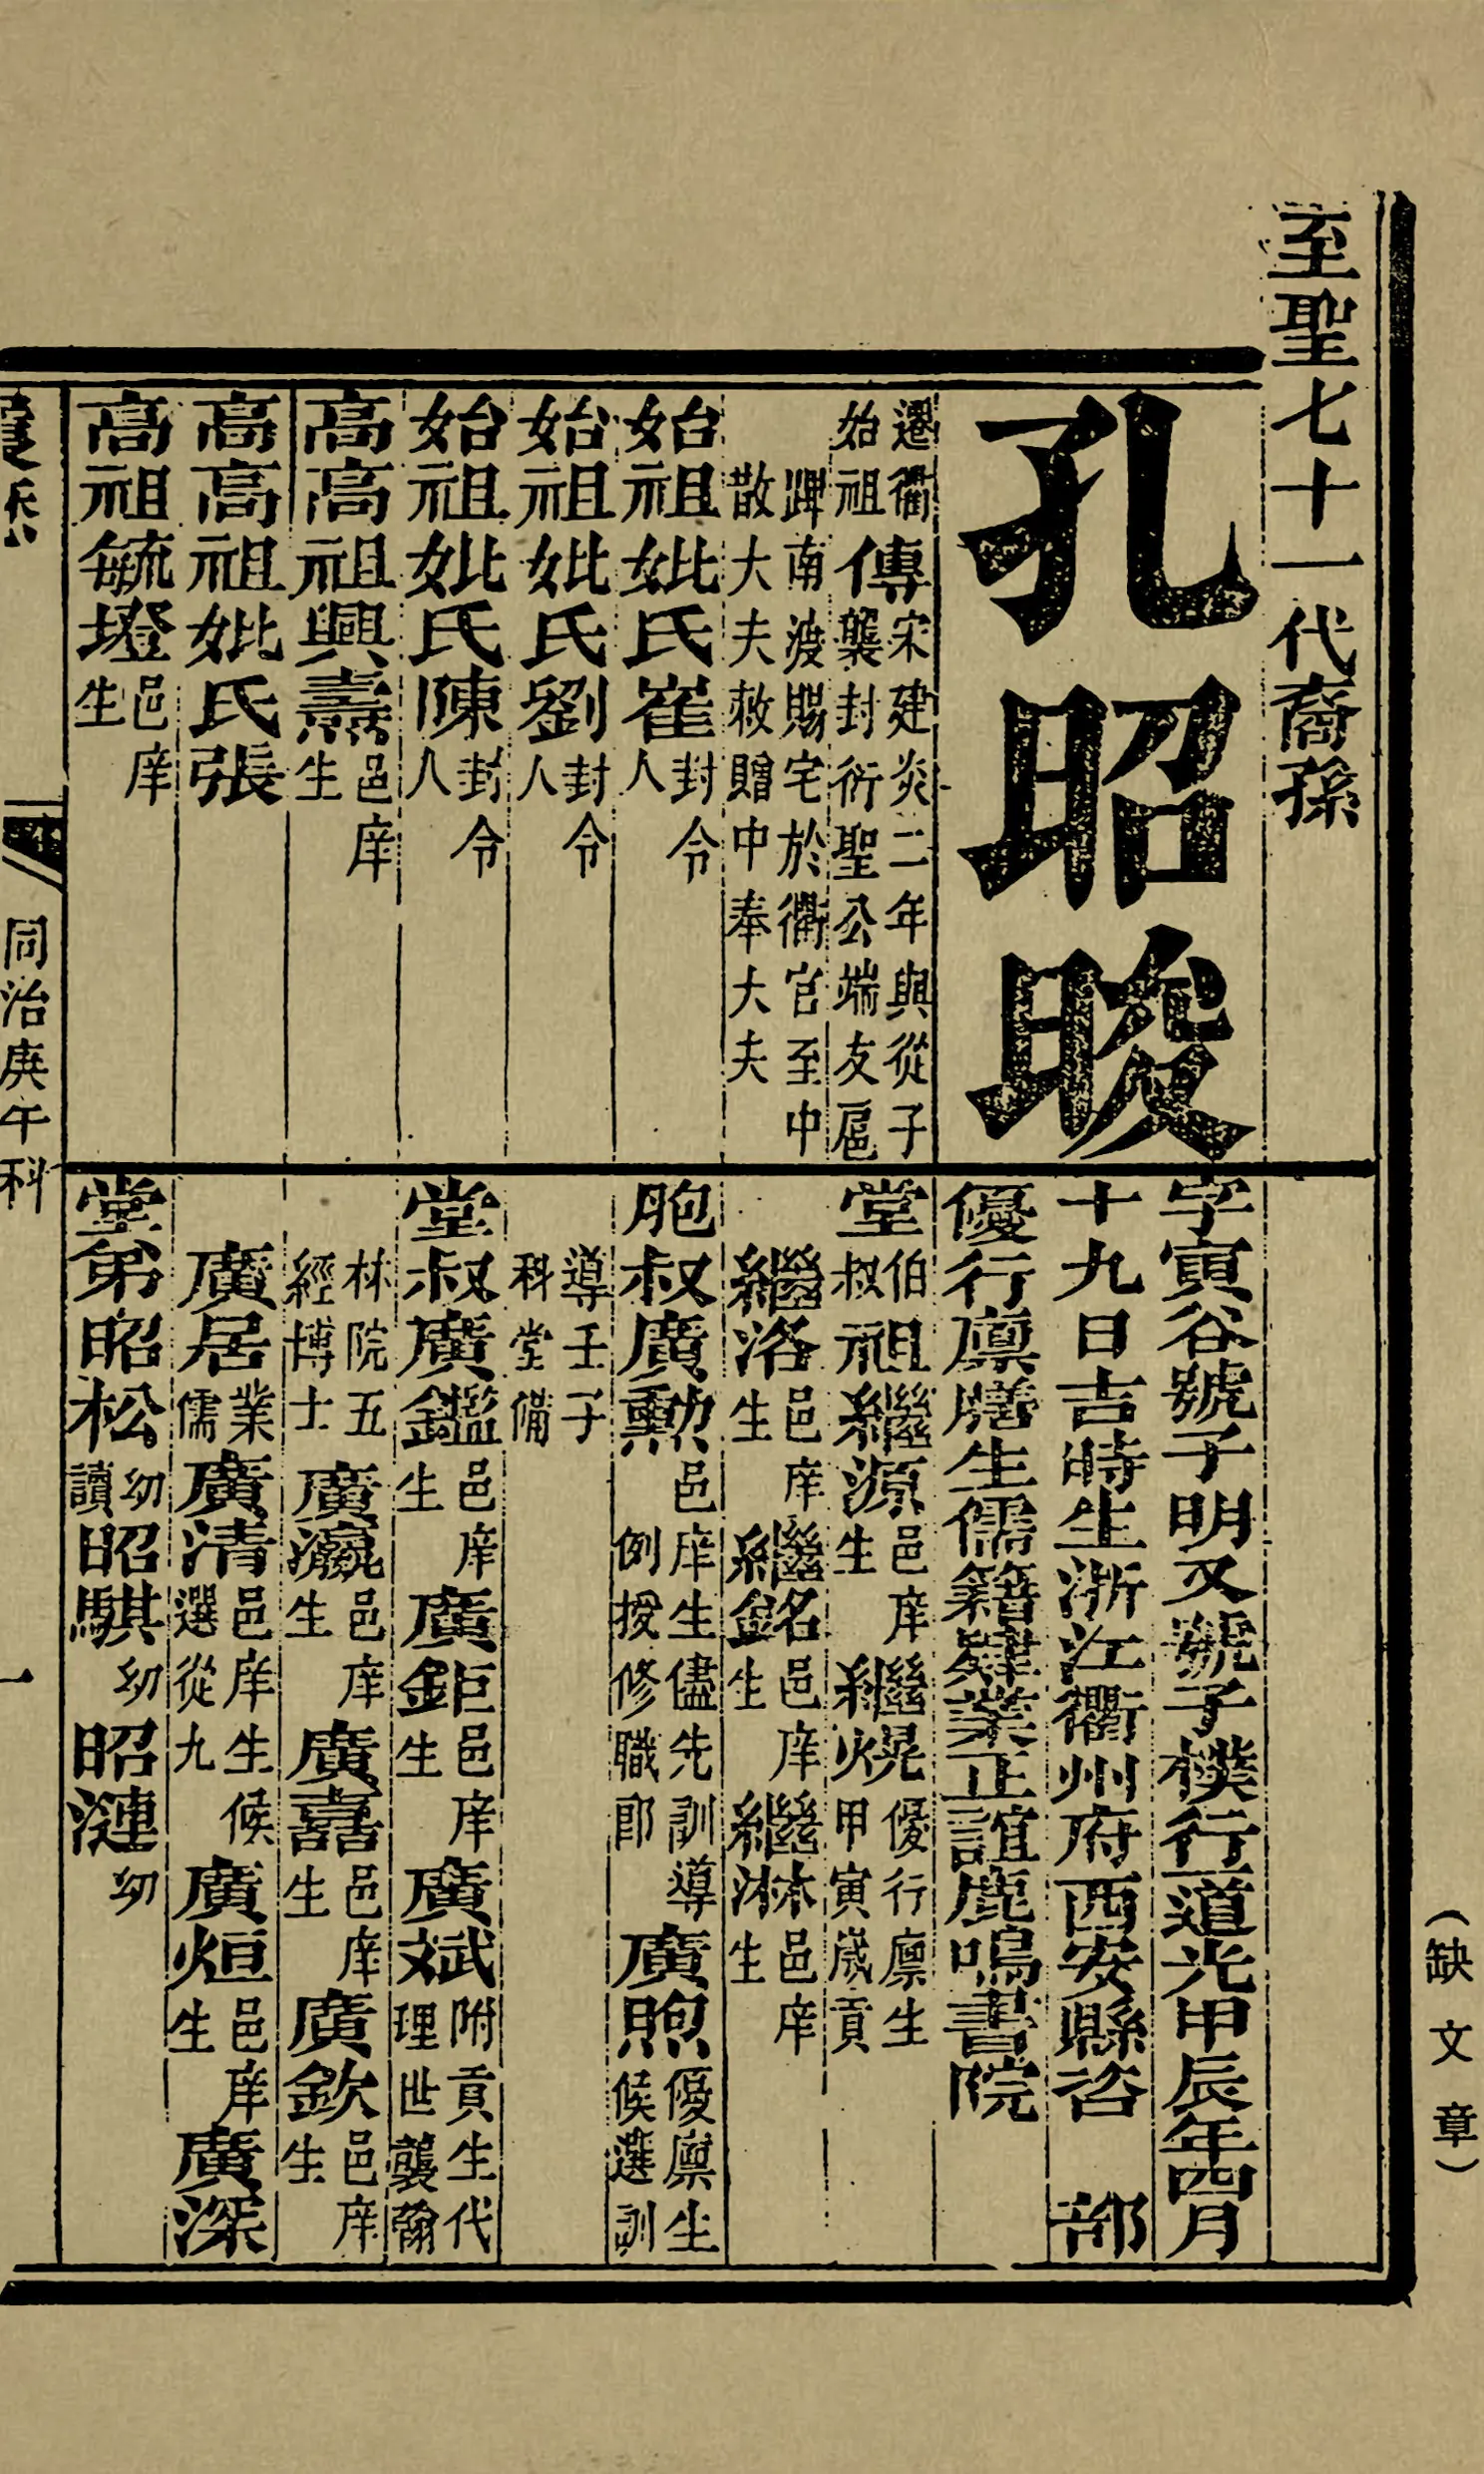 至聖七十一代裔孫
孔昭晙
字寅谷號子明又號子樸行一道光甲辰年四月
十九日吉時生浙江衢州府西安縣咨部
優行廩膳生儒籍肄業正誼鹿鳴書院
遷衢始祖傳宋建炎二年與從子襲封衍聖公端友扈
蹕南渡賜宅於衢官至中散大夫敕贈中奉大夫
始祖妣氏崔封令人
始祖妣氏劉封令人
始祖妣氏陳封令人
高高祖興燾邑庠生
高高祖妣氏張
高祖毓墱邑庠生
堂伯叔祖繼源邑庠生 繼焜優行廩生 繼火甲寅歲貢
繼洛邑庠生 繼銘邑庠生 繼淋邑庠生
胞叔廣勳邑庠生儘先訓導例授修職郎 廣煦優廩生候選訓
導壬子科堂備
堂叔廣鑑邑庠生 廣鉅邑庠生 廣斌附貢生代理世襲翰
林院五經博士 廣瀛邑庠生 廣嘉邑庠生 廣欽邑庠生
廣居業儒 廣清邑庠生候選從九 廣烜邑庠生 廣深
堂弟昭松幼讀 昭騏幼 昭漣幼
同治庚午科
一
（缺文章）